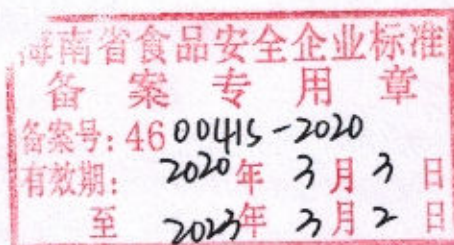 海南省食品安全企业标准
备案专用章
备案号: 46 0041S-2020
有效期: 2020年 3月 3日
至 2023年 3月 2日